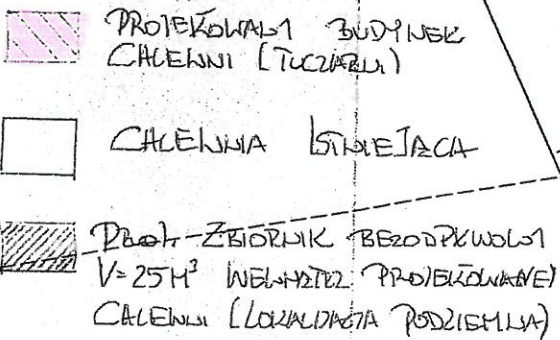 PROJEKOWANY BUDYNEK
CHLEWNI (TUCZARNI)
CHLEWNIA ISTNIEJĄCA
PROJ. ZBIORNIK BEZODPŁWOWY
V=25M³ WEWNĄTRZ PROJEKOWANEJ
CHLEWNI (LOKALIZACJA PODZIEMNA)